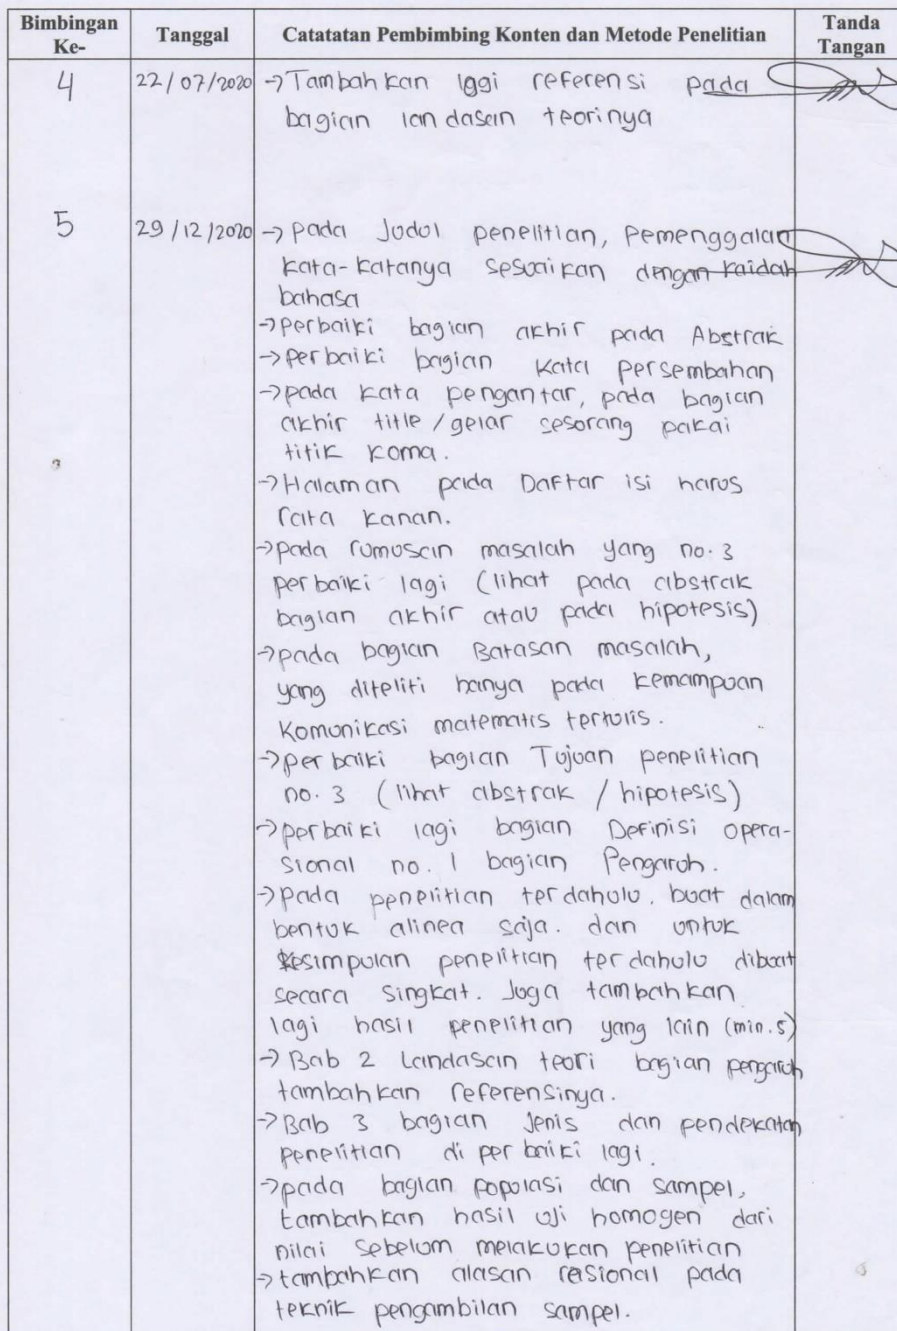 Bimbingan Ke- Tanggal Catatatan Pembimbing Konten dan Metode Penelitian Tanda Tangan
4 22/07/2020 → Tambahkan lggi referensi pada
bagian landasan teorinya
5 29/12/2020 → pada Judul penelitian, pemenggalan
kata-katanya sesuaikan dengan kaidah
bahasa
→ perbaiki bagian akhir pada Abstrak
→ perbaiki bagian kata persembahan
→ pada kata pengantar, pada bagian
akhir title/gelar sesorang pakai
titik koma.
→ Halaman pada Daftar isi harus
rata kanan.
→ pada rumusan masalah yang no.3
perbaiki lagi (lihat pada abstrak
bagian akhir atau pada hipotesis)
→ pada bagian Batasan masalah,
yang diteliti hanya pada kemampuan
komunikasi matematis tertulis.
→ perbaiki bagian Tujuan penelitian
no. 3 (lihat abstrak / hipotesis)
→ perbaiki lagi bagian Definisi opera-
sional no. 1 bagian Pengaruh.
→ pada penelitian terdahulu. buat dalam
bentuk alinea saja. dan untuk
kesimpulan penelitian terdahulu dibuat
secara singkat. Juga tambahkan
lagi hasil penelitian yang lain (min.5)
→ Bab 2 Landasan teori bagian pengaruh
tambahkan referensinya.
→ Bab 3 bagian Jenis dan pendekatan
penelitian di perbaiki lagi.
→ pada bagian populasi dan sampel,
tambahkan hasil uji homogen dari
nilai sebelum melakukan penelitian
→ tambahkan alasan rasional pada
teknik pengambilan sampel.